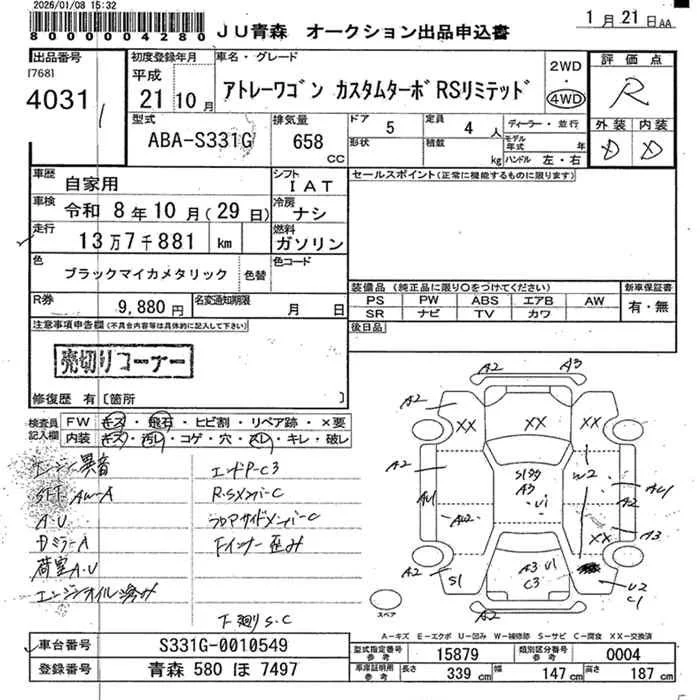 2026/01/08 15:32
8000004280
JU青森 オークション出品申込書
1月21日AA
出品番号
[768]
4031
初度登録年月
平成
21 10月
車名・グレード
アトレーワゴン カスタムターボRSリミテッド
2WD
4WD
評価点
R
外装 内装
D D
型式
ABA-S331G
排気量
658
CC
ドア
5
定員
4 人
形状
積載
kg
ディーラー・並行
モデル年式 年
ハンドル 左・右
車歴
自家用
シフト
IAT
車検
令和 8年10月(29日)
冷房
ナシ
走行
13万7千881 km
燃料
ガソリン
色
ブラックマイカメタリック
色替
色コード
セールスポイント(正常に機能するものに限ります)
R券
9,880円
名変通知期限
月 日
装備品 (純正品に限り○をつけてください)
PS PW ABS エアB AW
SR ナビ TV カワ
新車保証書
有・無
後日品
注意事項申告欄(不具合内容等は具体的に記入して下さい)
売切りコーナー
修復歴 有 [箇所 ]
検査員記入欄
FW キズ・飛石・ヒビ割・リペア跡・×要
内装 キズ・汚レ・コゲ・穴・スレ・キレ・破レ
エンジン異音
エンドP-C3
SFT、AW-A
R.Sメンバ-C
A・U
フロアサイドメンバ-C
DミラーA
Fインナー歪み
荷室A.U
エンジンオイル滲み
下廻りS・C
A2 A3
A2 XX XX XX A2
A2 S188 A3 U1 W2
AU1 AW2 AU1
XX A3
A2 S1 A3 U1 C3 U2 C1
A2
スペア
A-キズ E-エクボ U-凹み W-補修跡 S-サビ C-腐食 XX-交換済
車台番号
S331G-0010549
型式指定番号参考
15879
類別区分番号参考
0004
登録番号
青森 580 ほ 7497
車庫証明用参考
長さ 339 cm 幅 147 cm 高さ 187 cm